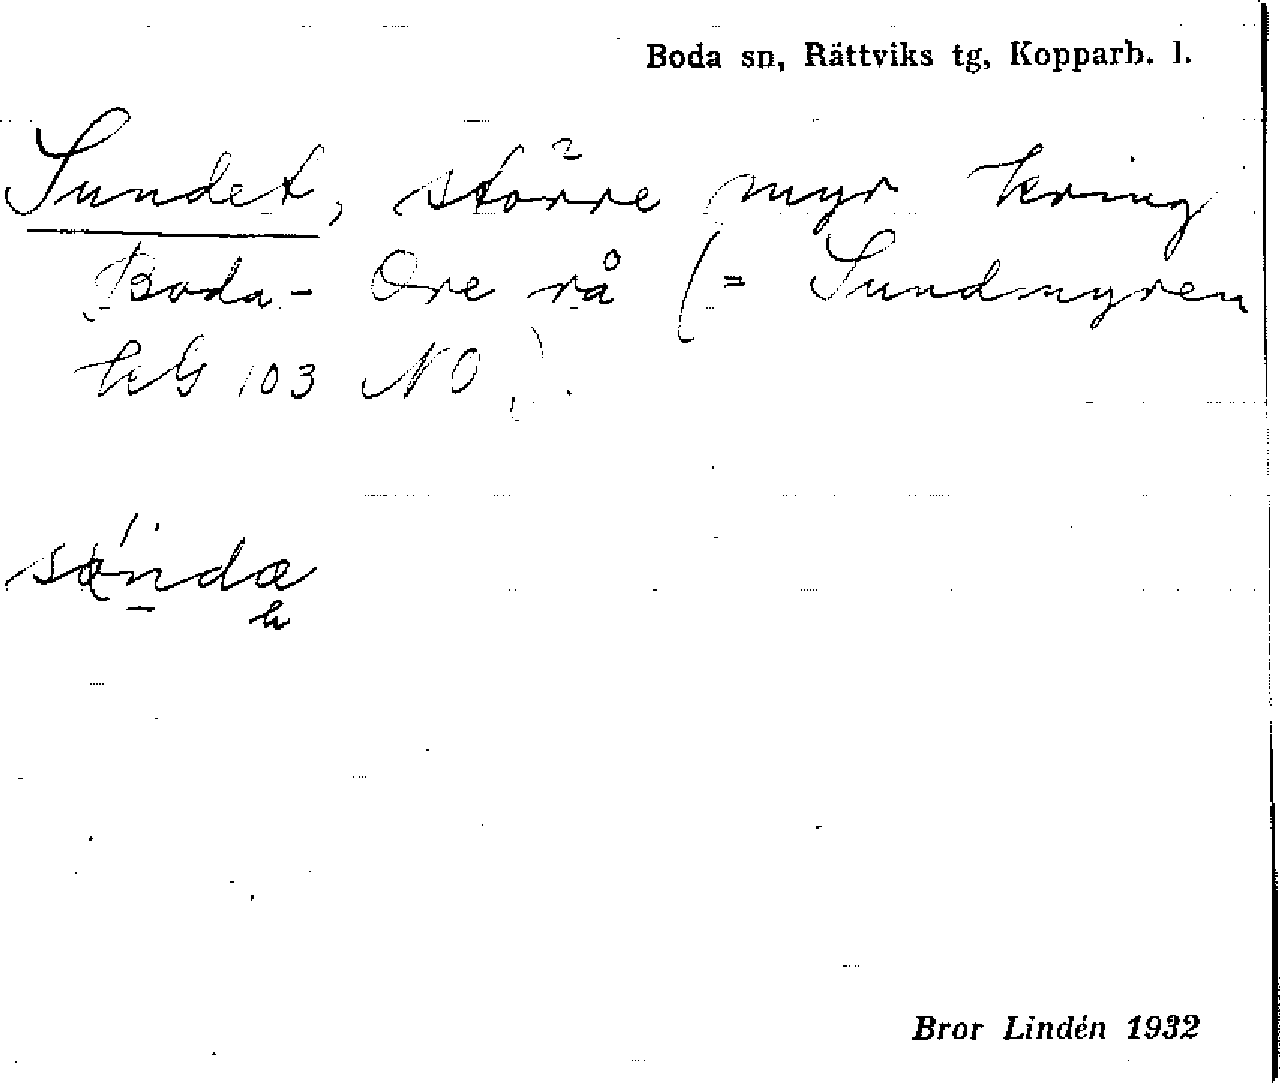 Boda sn, Rättviks tg, Kopparb. l.
Sundet, större myr kring
Boda- Ore rå (= Sundmyren
kG 103 NO).
Bror Lindén 1932